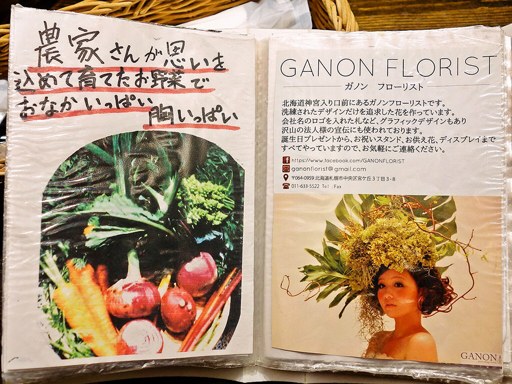 農家さんが思いを
込めて育てたお野菜で
おなかいっぱい 胸いっぱい
GANON FLORIST
ガノン フローリスト
北海道神宮入り口前にあるガノンフローリストです。
洗練されたデザインだけを追求した花を作っています。
会社名のロゴを入れた札など、グラフィックデザインもあり
沢山の法人様の宣伝にも使われております。
誕生日プレゼントから、お祝いスタンド、お供え花、ディスプレイまで
すべてやっていますので、お気軽にご連絡ください。
https://www.facebook.com/GANONFLORIST
ganonflorist@gmail.com
〒064-0959 北海道札幌市中央区宮ケ丘3丁目3-8
011-633-5522 Tel . Fax
GANON